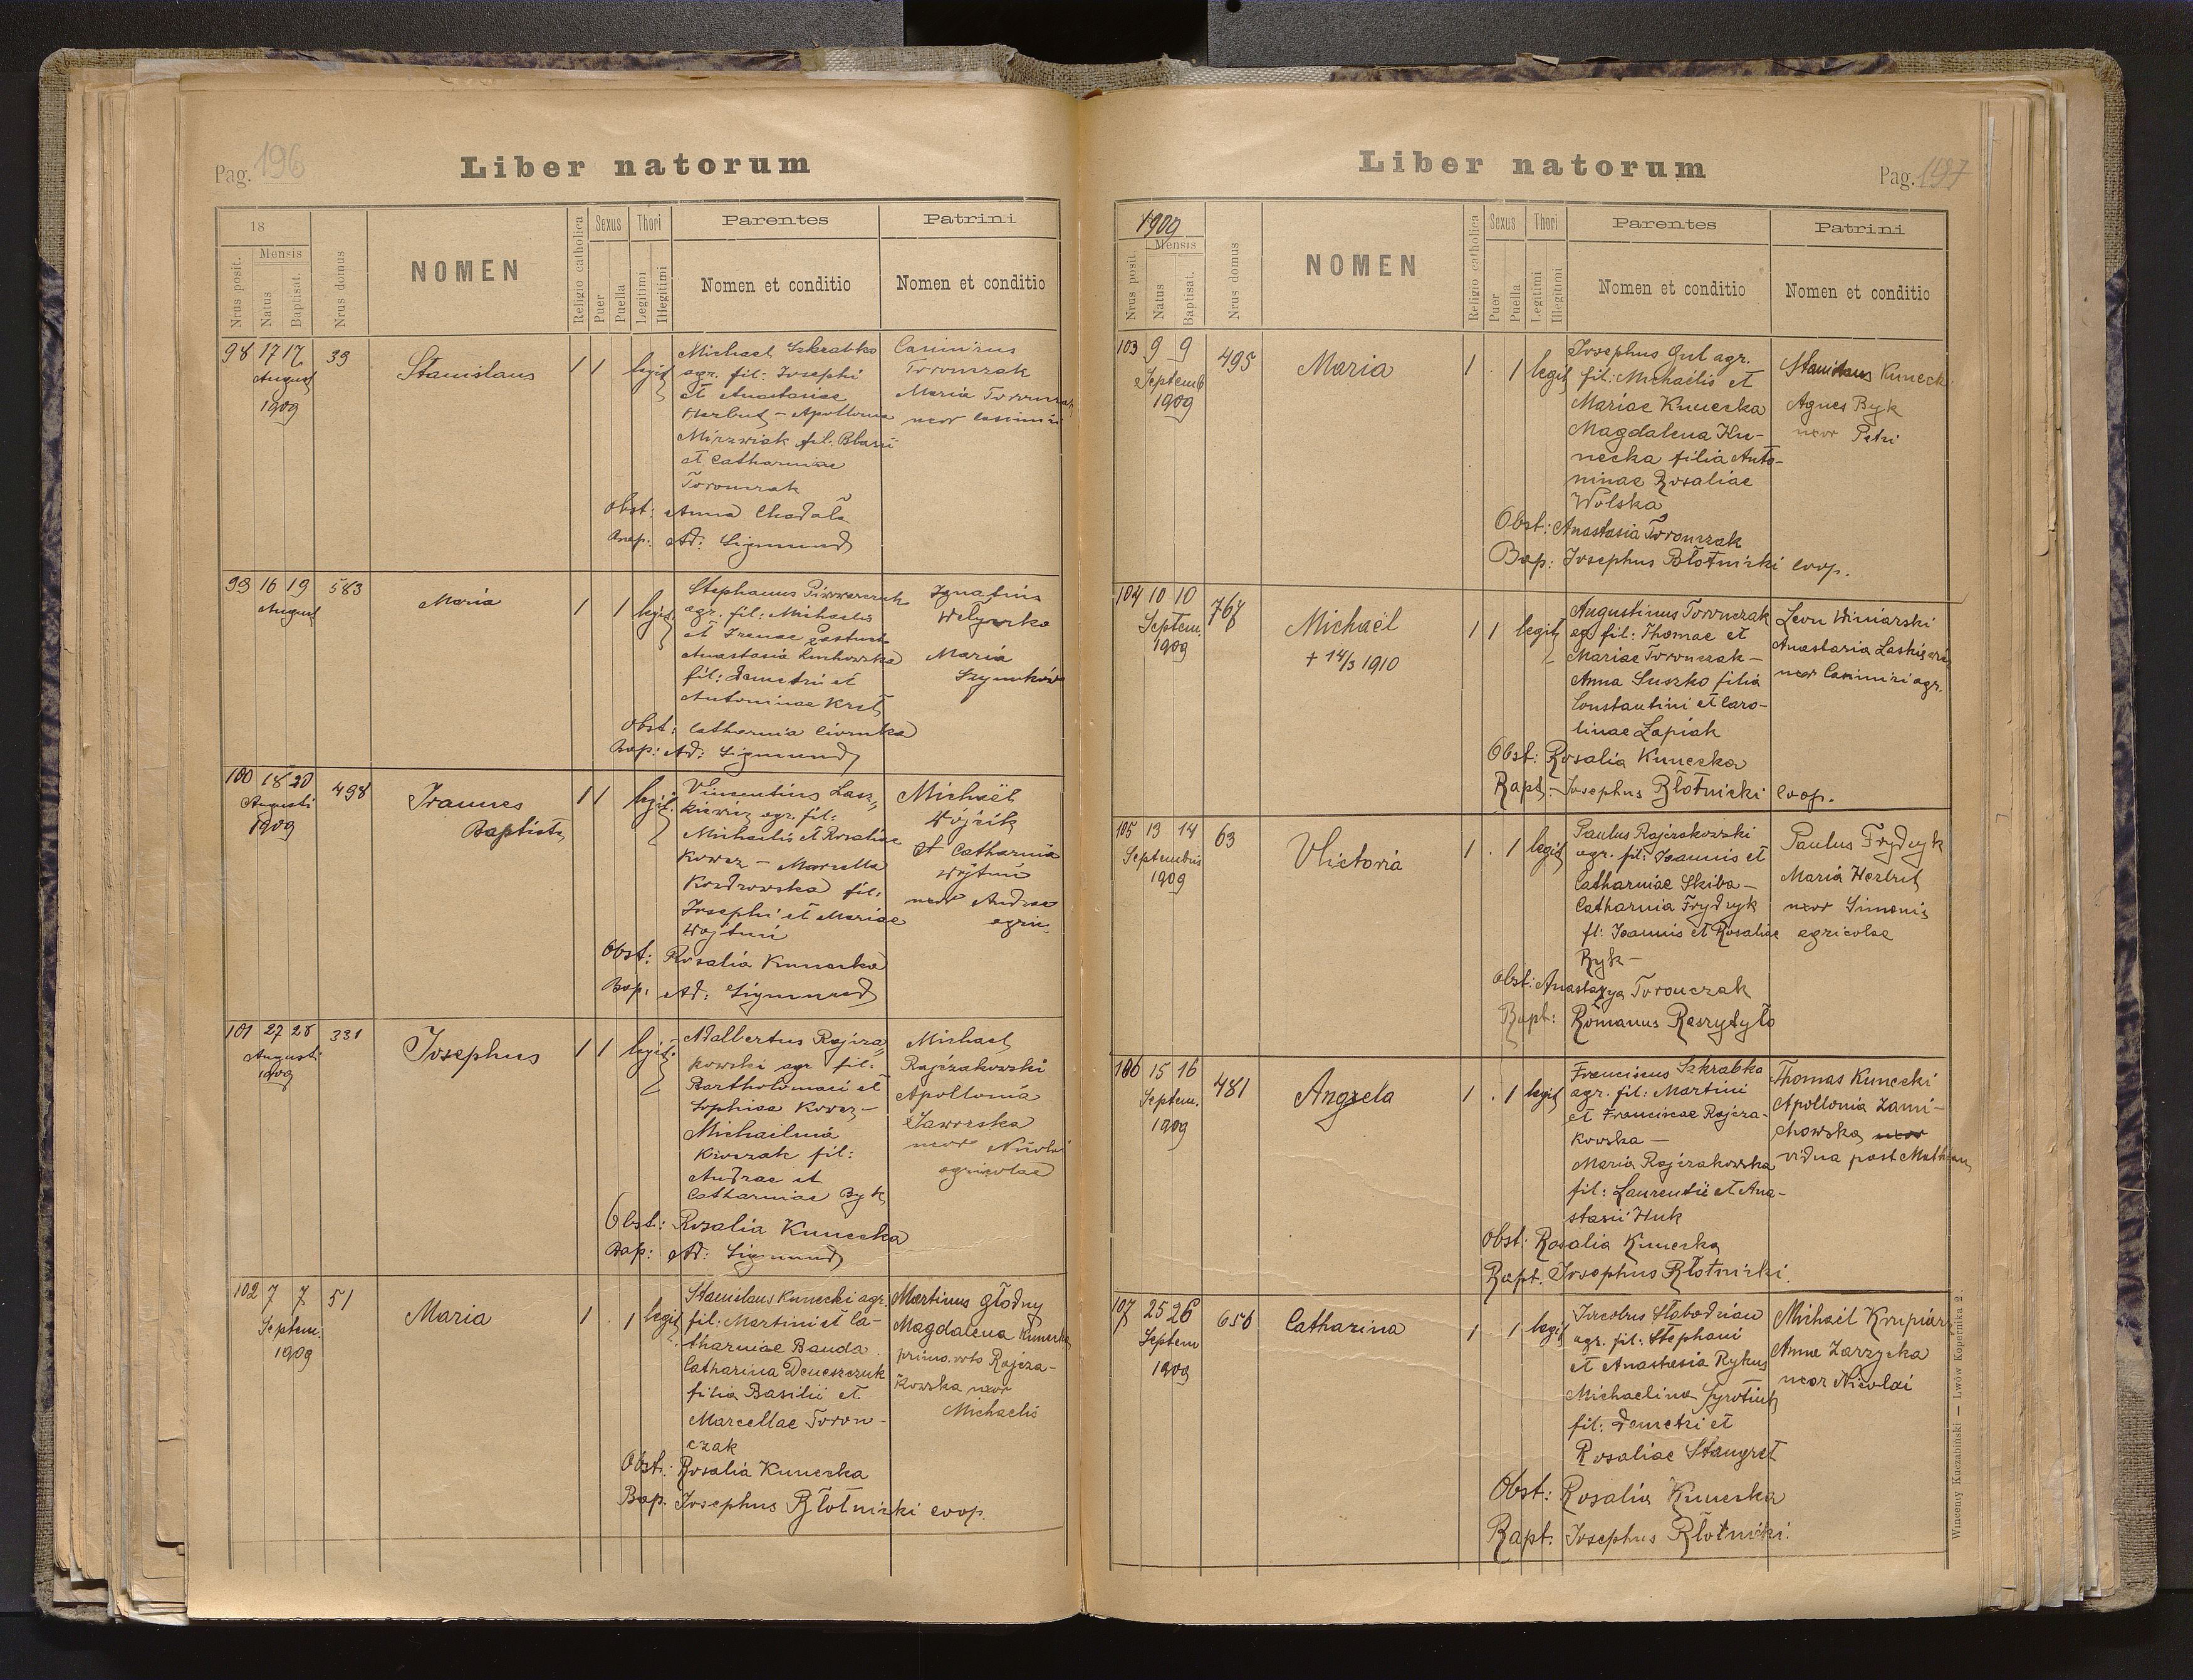 Pag. 196
Liber natorum
18
Mensis
Nrus posit.
Natus
Baptisat.
Nrus domus
NOMEN
Religio catholica
Sexus
Puer
Puella
Thori
Legitimi
Illegitimi
Parentes
Nomen et conditio
Patrini
Nomen et conditio
98 17 17 39
August
1909
Stanislaus
1 1 legit
Michael Szkrabko
agr. fil: Josephi
et Anastasiae
Herbut - Apollonia
fil. Blasii
et Catharinae
Toronczak
Casimirus
Toronczak
Maria Toronczak
uxor Casimiri
Obst: Anna
Bap: Ad: Sigmund
99 16 19 583
August
Maria
1 1 legit
Stephanus
agr. fil: Michaelis
et Irenae Pastuch
Anastasia
fil: Demetrii et
Antoninae
Ignatius
Maria
Obst: Catharina
Bap: Ad: Sigmund
100 18 20 498
Augusti
1909
Joannes
Baptista
1 1 legit
Vincentius Lasz-
kiewicz agr. fil:
Michaelis et Rosaliae
Kowcz - Marcella
fil:
Josephi et Mariae
Wojtuń
Michaël
Wójcik
et Catharina
Wojtuń
uxor Andreae
agric.
Obst: Rosalia Kunecka
Bap: Ad: Sigmund
101 27 28 331
Augusti
1909
Josephus
1 1 legit
Adalbertus Rajcza-
kowski agr fil:
Bartholomaei et
Sophiae Kowcz -
Michailina
fil:
Andreae et
Catharinae Byk
Michael
Rajczakowski
Apollonia
Jaworska
uxor Nicolai
agricolae
Obst: Rosalia Kunecka
Bap: Ad: Sigmund
102 7 7 51
Septem.
1909
Maria
1 . 1 legit
Stanislaus Kunecki agr.
fil: Martini et Ca-
tharinae Banda
Catharina Deneszczuk
filia Basilii et
Marcellae Toron-
czak
Martinus Głodny
Magdalena Kunecka
primo voto Rajcza-
kowska uxor
Michaelis
Obst: Rosalia Kunecka
Bap. Josephus Błotnicki coop.
Liber natorum
Pag. 197
1909
Mensis
Nrus posit.
Natus
Baptisat.
Nrus domus
NOMEN
Religio catholica
Sexus
Puer
Puella
Thori
Legitimi
Illegitimi
Parentes
Nomen et conditio
Patrini
Nomen et conditio
103 9 9 495
Septemb
1909
Maria
1 . 1 legit
Josephus Gul agr.
fil: Michaelis et
Mariae Kunecka
Magdalena Ku-
necka filia Anto-
ninae Rosaliae
Wolska
Stanislaus Kunecki
Agnes Byk
uxor Petri
Obst: Anastasia Toronczak
Bap: Josephus Błotnicki coop.
104 10 10 767
Septem.
1909
Michaël
+ 14/3 1910
1 1 legit
Augustinus Toronczak
ag. fil: Thomae et
Mariae Toronczak -
Anna Suszko filia
Constantini et Caro-
linae Łapiak
Leon Winiarski
Anastasia Laskiewicz
uxor Casimiri agr.
Obst: Rosalia Kunecka
Bapt - Josephus Błotnicki coop.
105 13 14 63
Septembris
1909
Victoria
1 . 1 legit
Paulus Rajczakowski
agr. fil: Joannis et
Catharinae Skiba -
Catharina Frydryk
fl: Joannis et Rosaliae
Byk -
Paulus Frydryk
Maria Herbut
uxor Simonis
agricolae
Obst: Anastazya Toronczak
Bapt: Romanus Reszytyło
106 15 16 481
Septem.
1909
Angela
1 . 1 legit
Franciscus Szkrabka
agr. fil: Martini
et Franciscae Rajcza-
kowska -
Maria Rajczakowska
fil: Laurentii et Ana-
stasii Huk
Thomas Kunecki
Apollonia Zami-
chowska uxor
vidua post
Obst: Rosalia Kunecka
Bapt. Josephus Błotnicki.
107 25 26 656
Septem
1909
Catharina
1 . 1 legit
Jacobus Słabodnian
agr. fil: Stephani
et Anastasia Rykus
Michaelina Syrotiuk
fil: Demetri et
Rosaliae Stangret
Michaël
Anna Zarzycka
uxor Nicolai
Obst: Rosalia Kunecka
Bapt: Josephus Błotnicki.
Wincenty Kuczabiński — Lwów Kopernika 2.